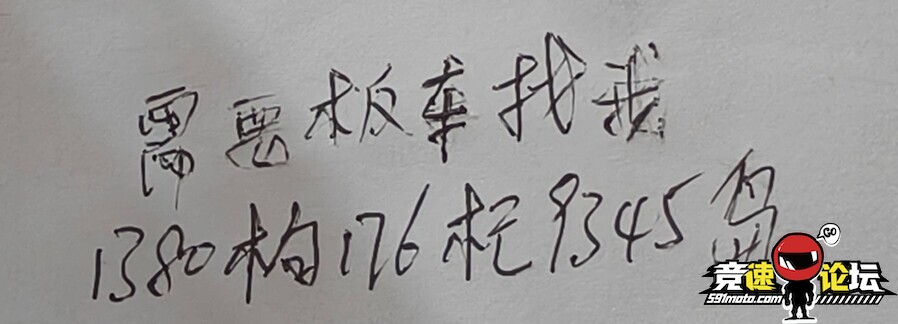 需要板车找我
1380构176杧9345岛
GO
竞速论坛
591moto.com